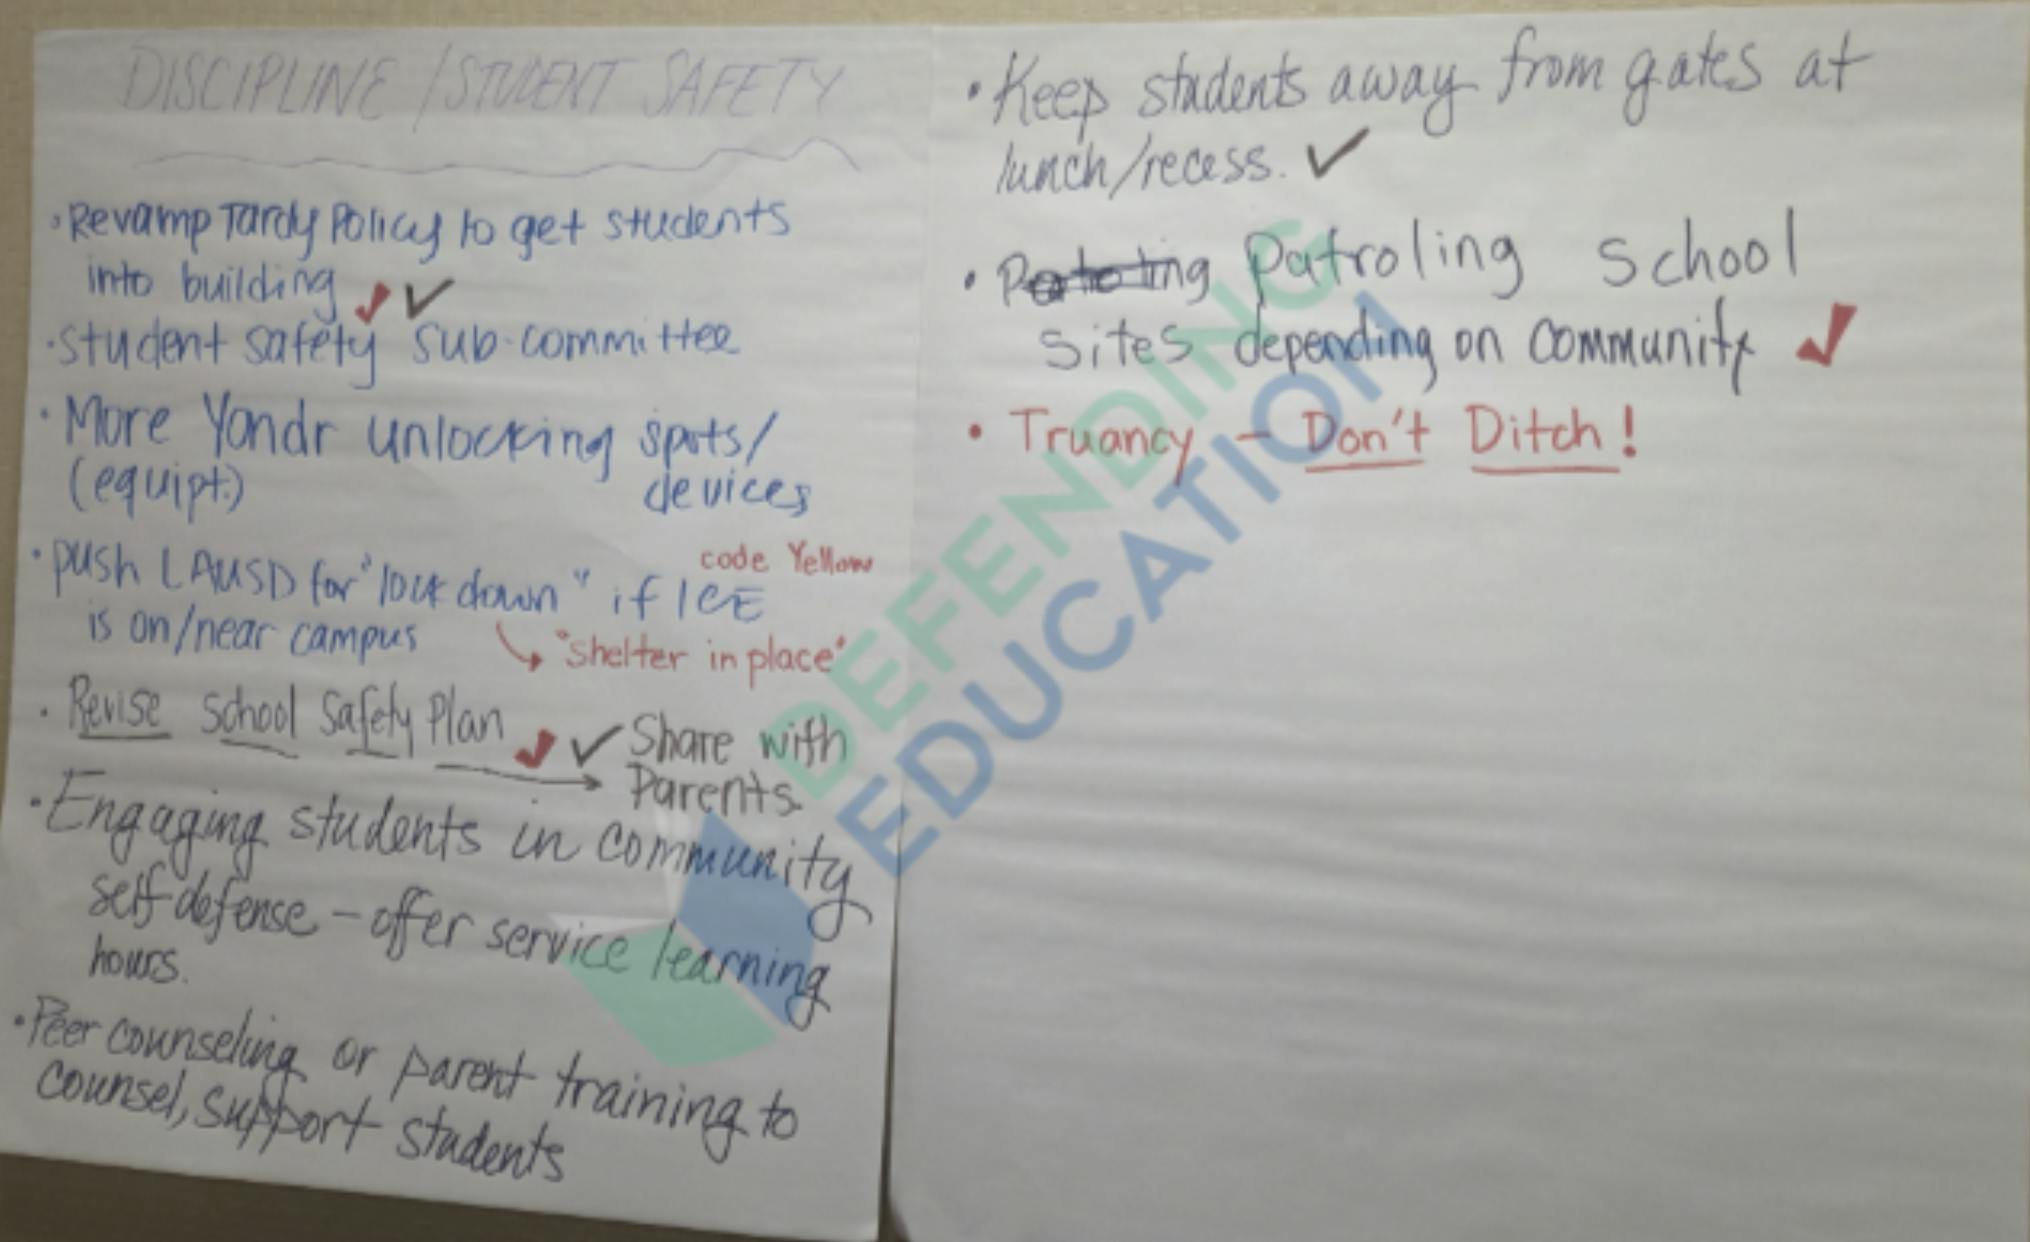 DISCIPLINE / STUDENT SAFETY
• Revamp Tardy Policy to get students
into building ✓ ✓
• student safety sub-committee
• More Yondr unlocking spots/
(equipt.) devices
code Yellow
• push LAUSD for "lock down" if ICE
is on/near campus
"shelter in place"
• Revise School Safety Plan ✓ ✓ Share with
Parents.
• Engaging students in community
self-defense – offer service learning
hours.
• Peer counseling or parent training to
counsel, support students
• Keep students away from gates at
lunch/recess. ✓
• Patroling school
sites depending on community ✓
• Truancy – Don't Ditch!
DEFENDING
EDUCATION